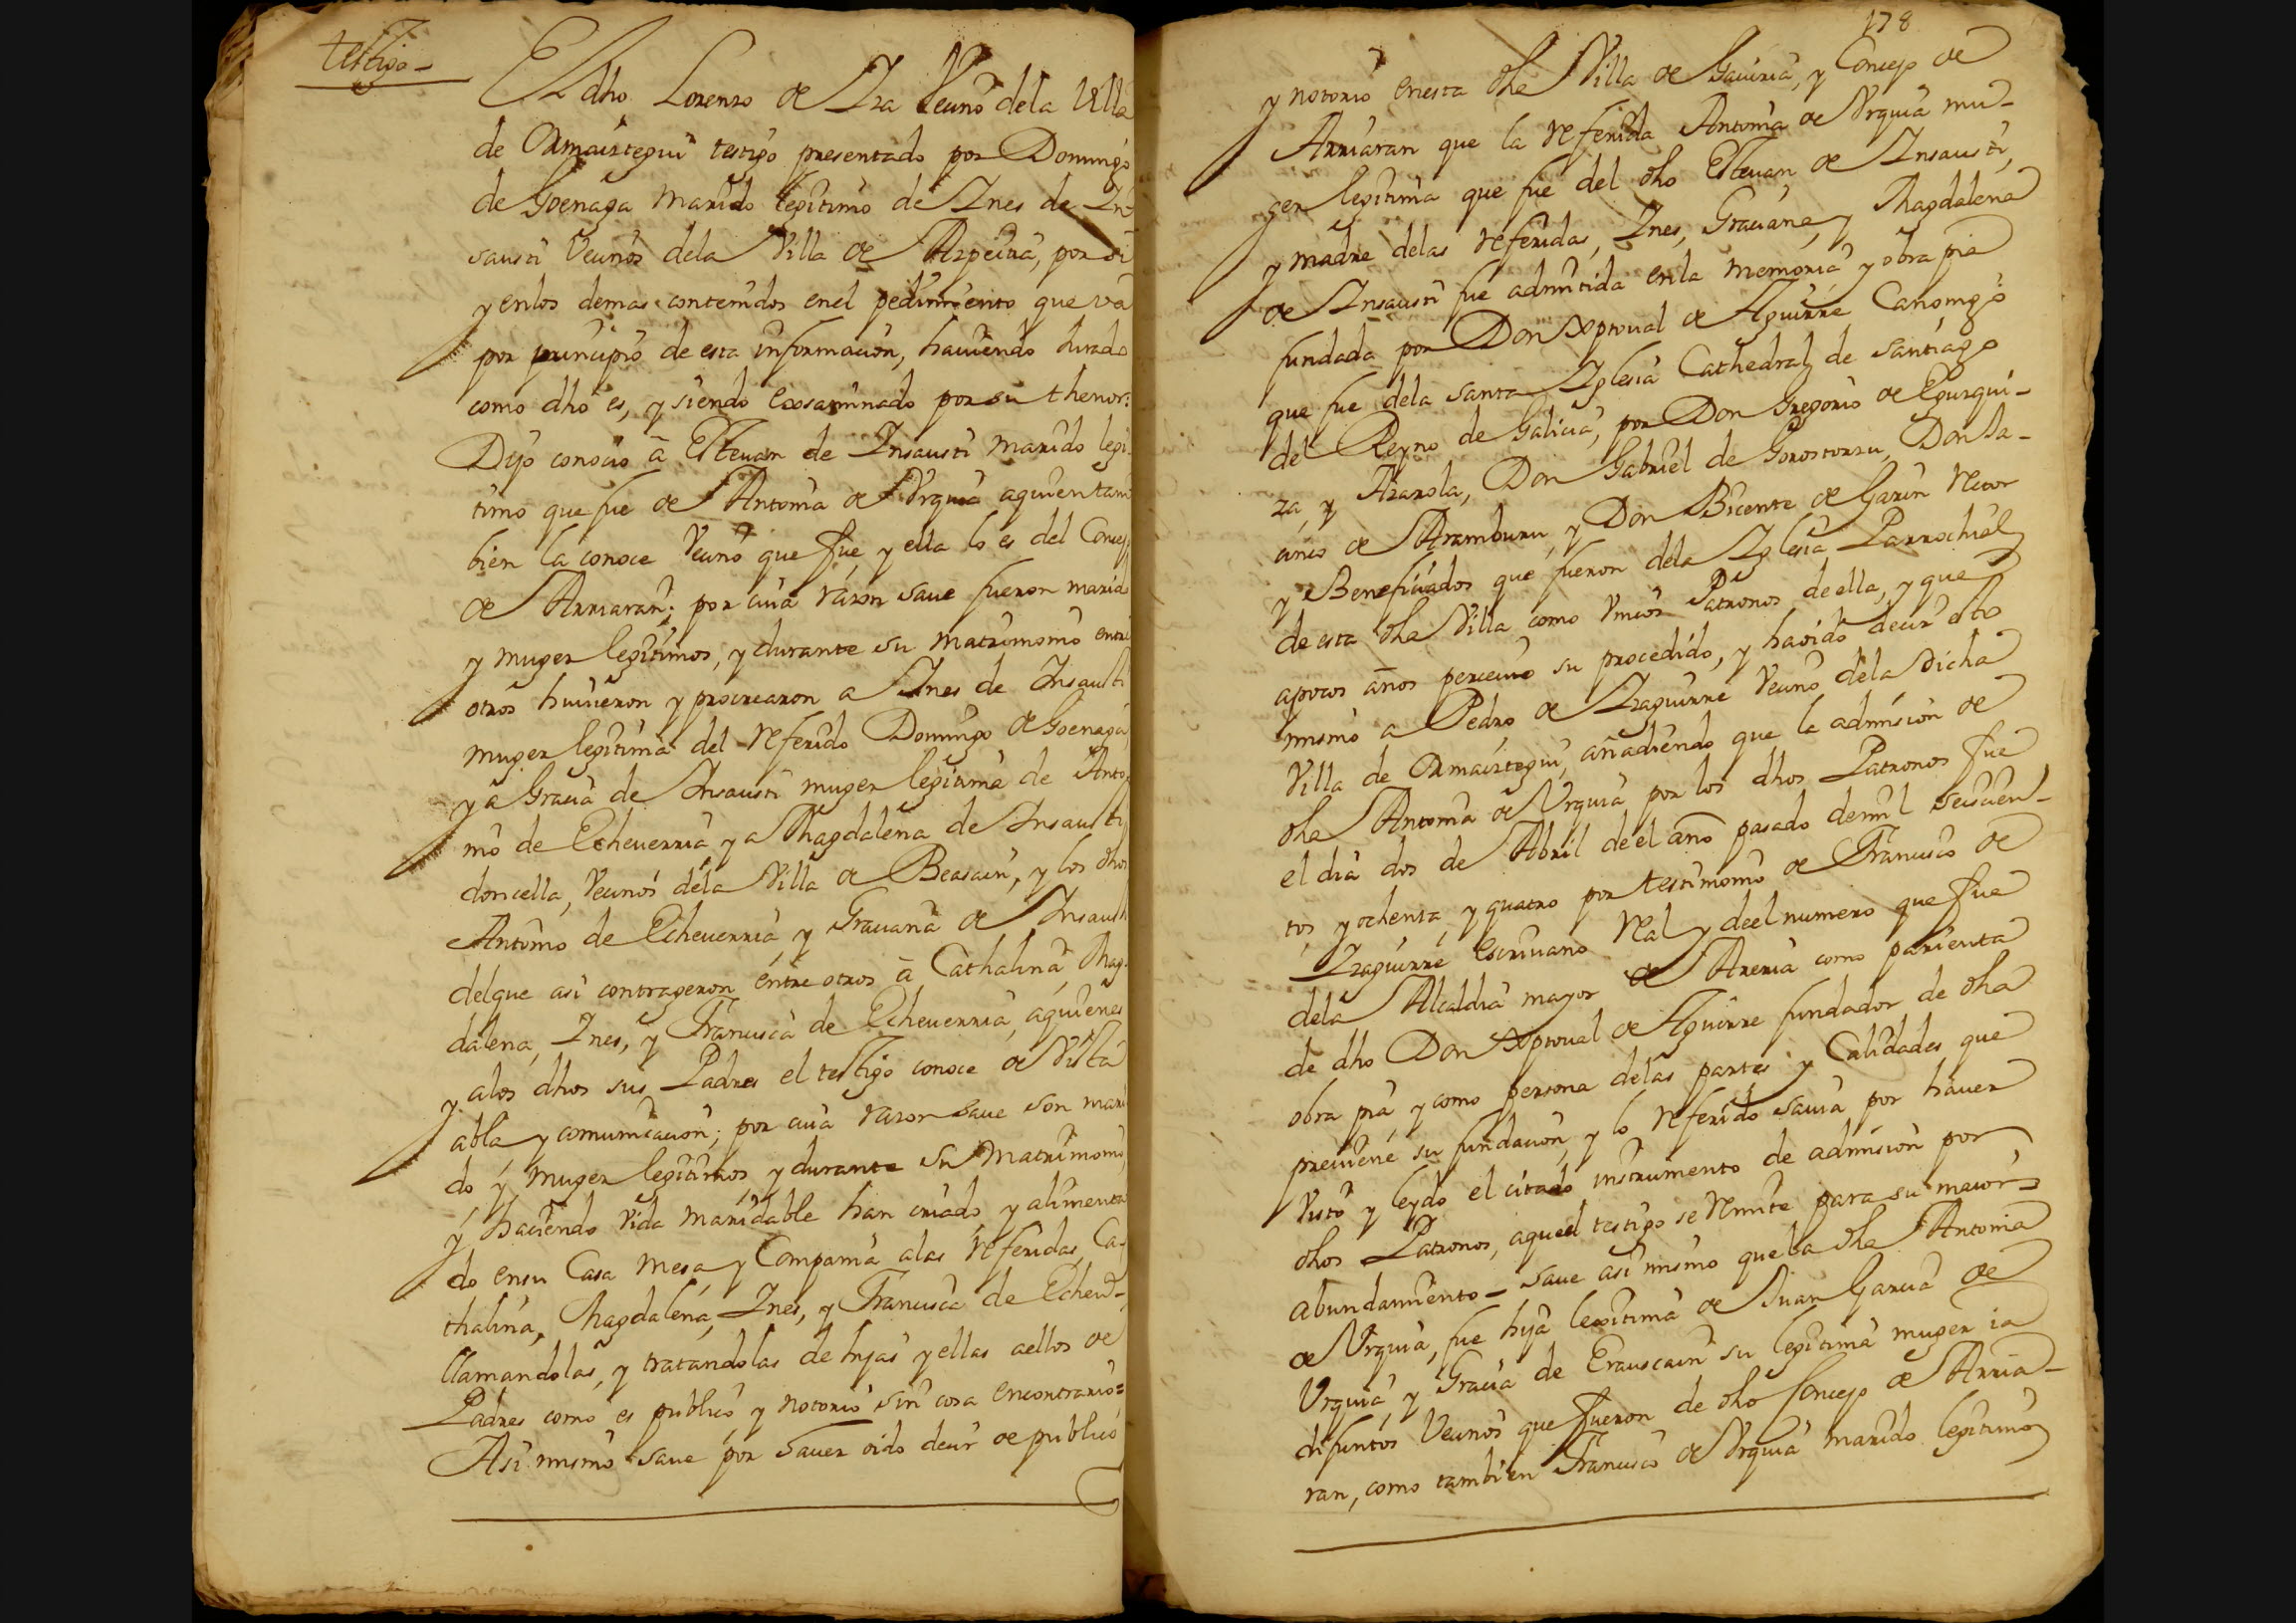 testigo –
El dho Lorenzo de Iza Veçino dela Villa
de Ormaiztegui testigo presentado por Domingo
de Goenaga marido legitimo de Ines de In-
sausti Veçinos dela Villa de Azpeitia, por si
y enlos demas contenidos enel pedimiento que va
por prinçipio de esta informaçion, haviendo Jurado
como dho es, y siendo exsaminado por su thenor:
Dijo conoçio â Estevan de Insausti marido legi-
timo que fue de Antonia de Vrquia aquien tam
bien la conoce Veçino que fue, y ella lo es del Conçejo
de Arriaran; por cuia razon save fueron marido
y muger legitimos, y durante su matrimonio entre
otros huvieron y procrearon a Ines de Insausti
muger legitima del referido Domingo de Goenaga,
y â Graçia de Insausti muger legitima de Anto
nio de Echeverria y a Magdalena de Insausti
doncella, Veçinos dela Villa de Beasain, y los dhos
Antonio de Echeverria, y Graçiana de Insausti
delque asi contrageron entre otros â Cathalina, Mag-
dalena, Ines, y Françisca de Echeverria, aquienes
y alos dhos sus Padres el testigo conoce de Vista
abla, y comunicaçion; por cuia razon save son mari
do y muger legitimos, y durante su Matrimonio,
y haçiendo Vida maridable han criado, y alimenta
do ensu Casa mesa, y Compania alas referidas Ca-
thalina, Magdalena, Ines, y Françisca de Echev-
llamandolas, y tratandolas de hijas y ellas aellos de
Padres como es publico, y notorio sin cosa encontrario=
Asi mismo save por haver oido deçir de publico
178
y notorio enesta dha Villa de Gaviria, y Conçejo de
Arriaran que la referida Antonia de Vrquia mu-
ger legitima que fue del dho Estevan de Insausti,
y madre delas referidas, Ines, Graçiana, y Magdalena
de Insausti fue admitida enla memoria y obra pia
fundada por Don Xptoval de Aguirre Canonigo
que fue dela Santa Iglesia Cathedral de Santiago
del Reyno de Galiçia, por Don Gregorio de Egurqui-
za, y Azarola, Don Gabriel de Gorostorzu, Don Ja-
çinto de Aramburu, y Don Biçente de Garin Retor
y Benefiçiados que fueron dela Iglesia Parrochial
de esta dha Villa como Vnicos Patronos de ella, y que
apocos años perçivio su proçedido, y ha oido deçir dho
mismo a Pedro de Izaguirre Veçino dela dicha
Villa de Ormaiztegui, añadiendo que la admision de
dha Antonia de Vrquia por los dhos Patronos fue
el dia dos de Abril de el año pasado demil Seisçien-
tos y ochenta, y quatro por testimonio de Françisco de
Izaguirre escrivano Real y deel numero que fue
dela Alcaldia mayor de Areria como parienta
de dho Don Xptoval de Aguirre fundador de dha
obra pia, y como persona delas partes y Calidades que
previene su fundaçion, y lo referido savia por haver
Visto y leydo el citado instrumento de admision por
dhos Patronos, aque el testigo se remite para su maior
abundamiento – Save asi mismo que la dha Antonia
de Vrquia, fue hija lexitima de Juan Garçia de
Vrquia, y Graçia de Erauscain su legitima muger ia
difuntos Veçinos que fueron de dho Conçejo de Arria-
ran, como tambien Françisco de Vrquia marido legitimo